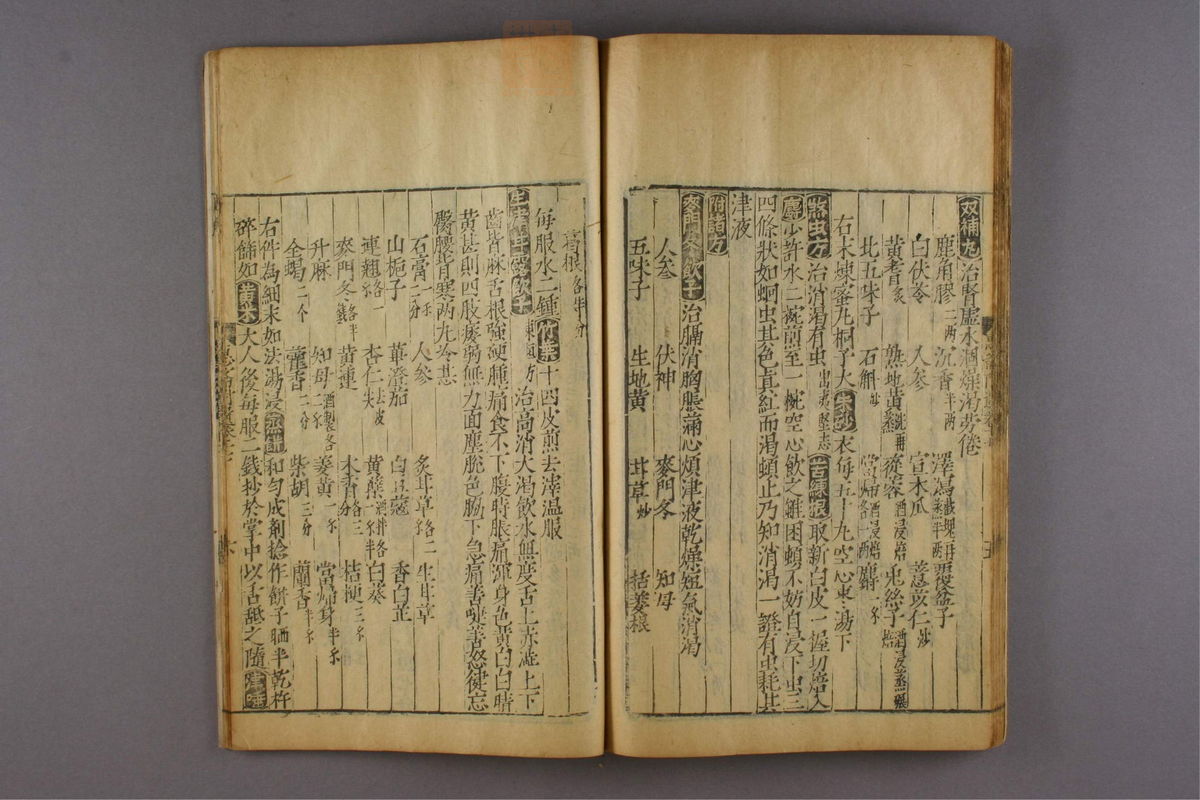 双補丸 治腎虛水涸燥渴勞倦
鹿角膠二兩 沉香半兩 澤瀉 覆盆子
白伏苓 人参 宣木瓜 薏苡仁炒
黃耆炙 熟地黃 蓯蓉酒浸焙 兎絲子酒浸蒸
北五味子 石斛炒 當歸酒浸焙各一兩 麝一禾
右末煉蜜丸梧子大 朱砂 衣每五十丸空心棗湯下
殺虫方 治消渴有虫出夷堅志 苦練根 取新白皮一握切焙入
麝 少許水二椀煎至一椀空心飲之雖困頓不妨自浸下虫三
四條狀如蛔虫其色真紅而渴頓止乃知消渴一證有虫耗其
津夜
附諸方
麥門冬飲子 治膈消胸脹滿心煩津液乾燥短氣消渴
人参 伏神 麥門冬 知母
五味子 生地黃 甘草炒 括蔞根
葛根各半分
每服水二鍾 竹葉 十四皮煎去滓温服
生津甘露飲子 東垣方治高消大渴飲水無度舌上赤澁上下
齒皆麻舌根強硬腫痛食不下腹時脹痛渾身色黃白白睛
黃甚則四肢痿弱無力面塵脫色脇下急痛善嚏善怒健忘
臀腰背寒两丸冷甚
石膏一禾二分 人参 炙甘草各二 生甘草
山梔子 蓽澄茄 白豆蔻 香白芷
連翹各一禾 杏仁去皮尖 黃蘗酒拌各一禾半 白葵
麥門冬各半錢 黃連 木香各三 桔梗三禾
升麻 知母酒製各二禾 姜黃一禾 當歸身半禾
全蝎二个 藿香二分 柴胡三分 蘭香半禾
右件為細末如法湯浸 蒸餅 和匀成劑捻作餅子晒半乾杵
碎篩如 黃米 大人後每服二錢抄於掌中以舌舐之隨 津唾